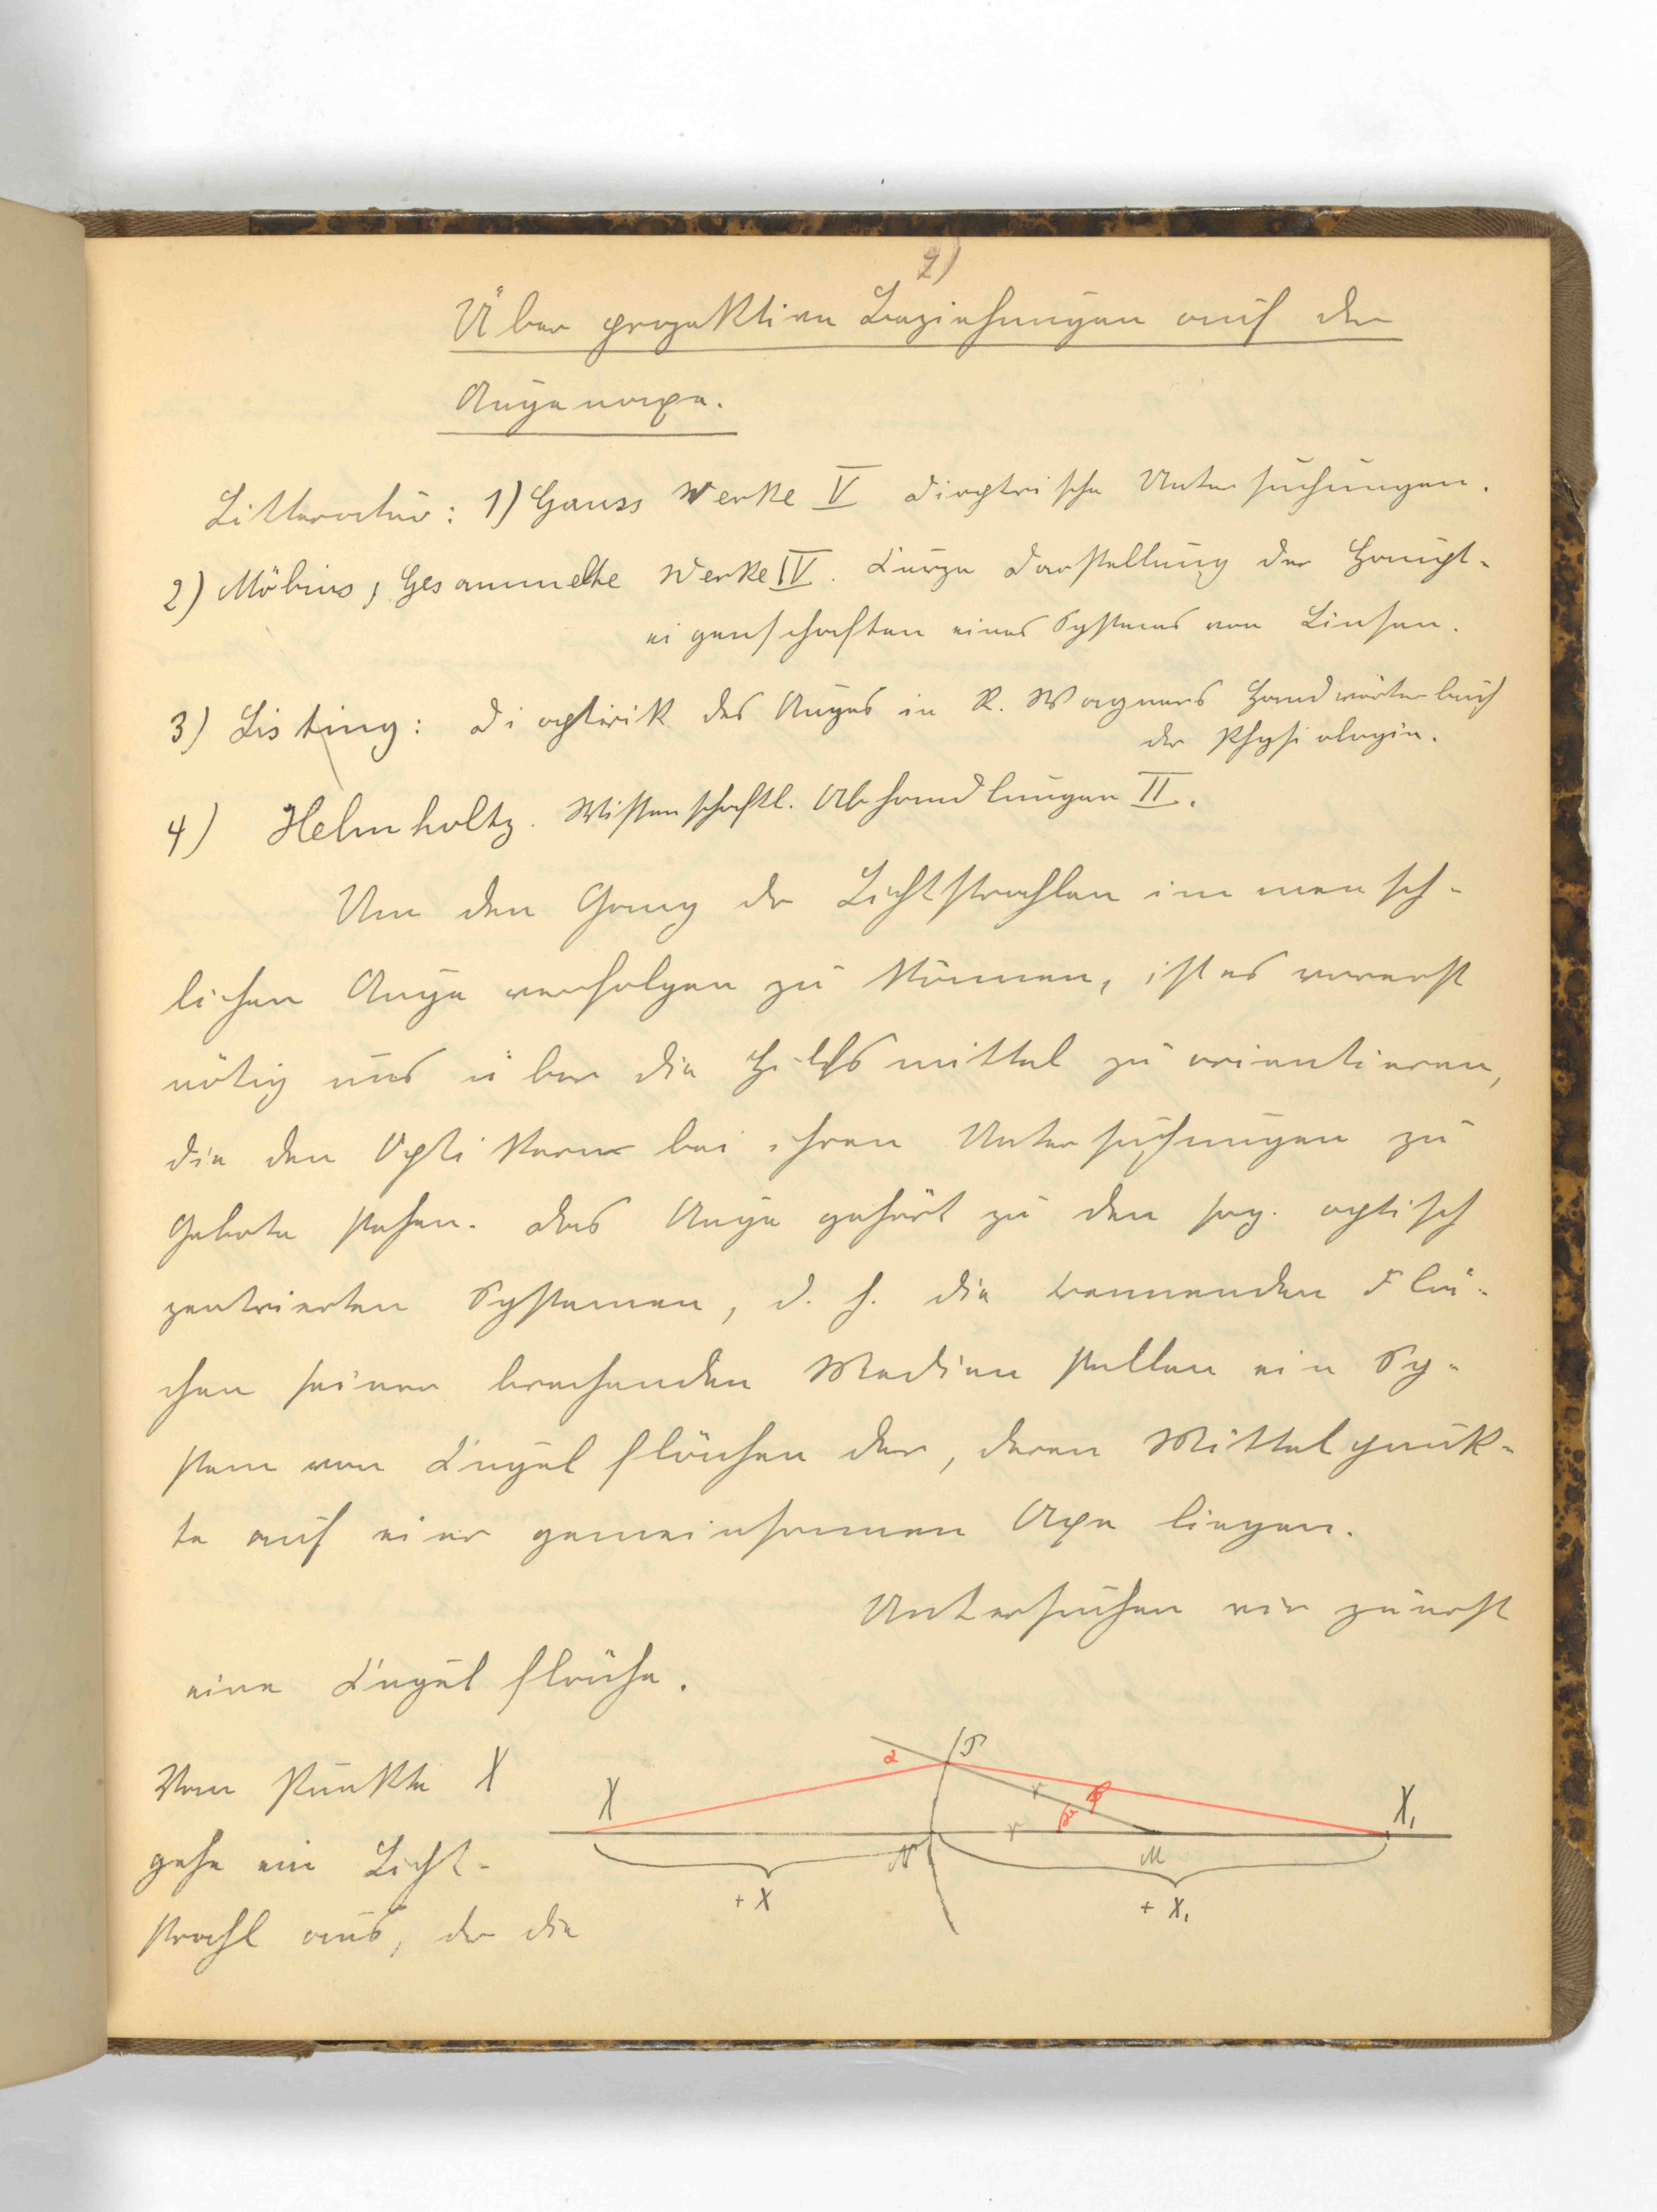 2)
Über projektive Beziehungen auf der
Augenaxe.
Litteratur: 1) Gauss Werke V dioptrische Untersuchungen.
2) Möbius, Gesammelte Werke IV. Kurze Darstellung der Haupt-
eigenschaften eines Systemes von Linsen.
3) Listing: Dioptrik des Auges in R. Wagners Handwörterbuch
der Physiologie.
4) Helmholtz. Wissenschaftl. Abhandlungen II.
Um den Gang der Lichtstrahlen im mensch-
lichen Auge verfolgen zu können, ist es vorerst
nötig uns über die Hilfsmittel zu orientieren,
die den Optikern bei ihren Untersuchungen zu
Gebote stehen. Das Auge gehört zu den sog. optisch
zentrierten Systemen, d. h. die trennenden Flä-
chen seiner brechenden Medien stellen ein Sy-
stem von Kugelflächen dar, deren Mittelpunk-
te auf einer gemeinsamen Axe liegen.
Untersuchen wir zuerst
eine Kugelfläche.
Vom Punkte X
gehe ein Licht-
strahl aus, der die
X α P r β φ r N M X₁
+ X + X₁